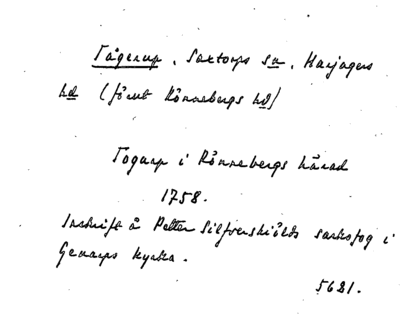 Tågerup, Saxtorps sn, Harjagers
hd (förut Rönnebergs hd)
Togarp i Rönnebergs härad
1758.
Inskrift å Petter Silfverskiölds sarkofag i
Genarps kyrka.
5621.